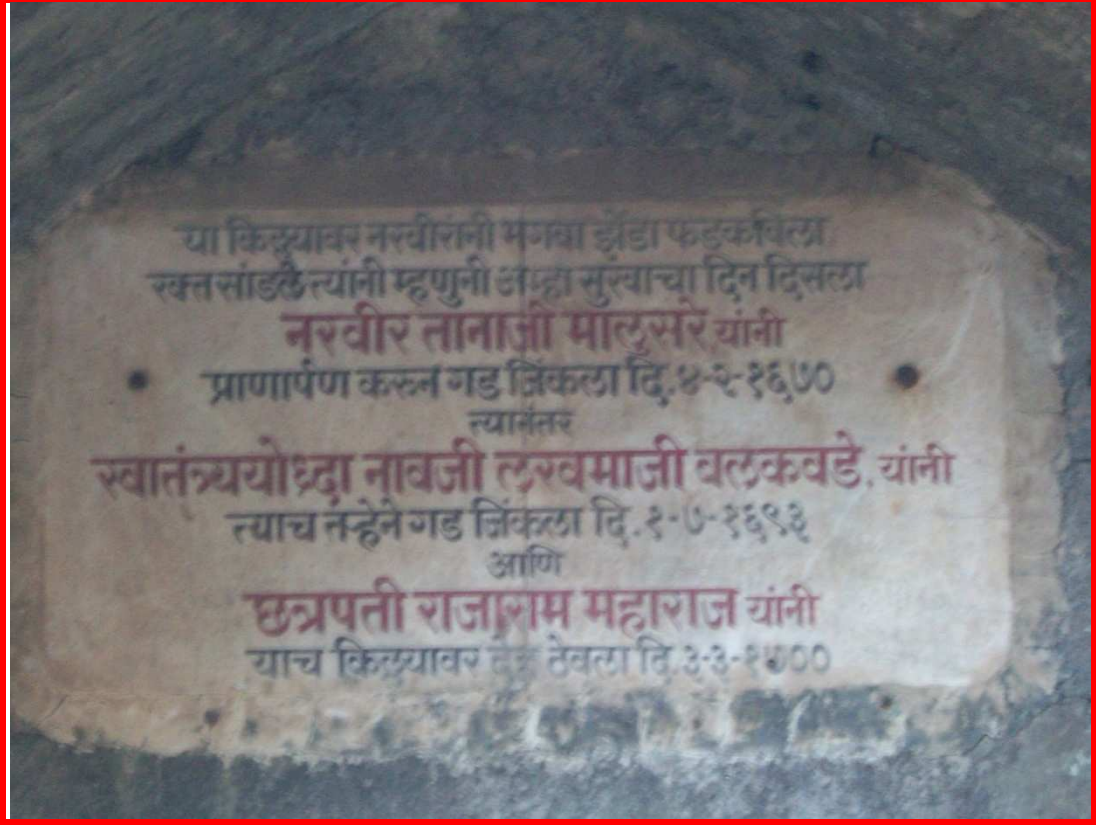 या किल्ल्यावर नरवीरांनी भगवा झेंडा फडकविला
रक्त सांडले त्यांनी म्हणुनी अम्हा सुखाचा दिन दिसला
नरवीर तानाजी मालुसरे, यांनी
प्राणार्पण करुन गड जिंकला दि.४-२-१६७०
त्यानंतर
स्वातंत्र्ययोध्दा नावजी लखमाजी बलकवडे, यांनी
त्याच तऱ्हेने गड जिंकला दि.१-७-१६९३
आणि
छत्रपती राजाराम महाराज यांनी
याच किल्ल्यावर ठेवला दि.३-३-१७००